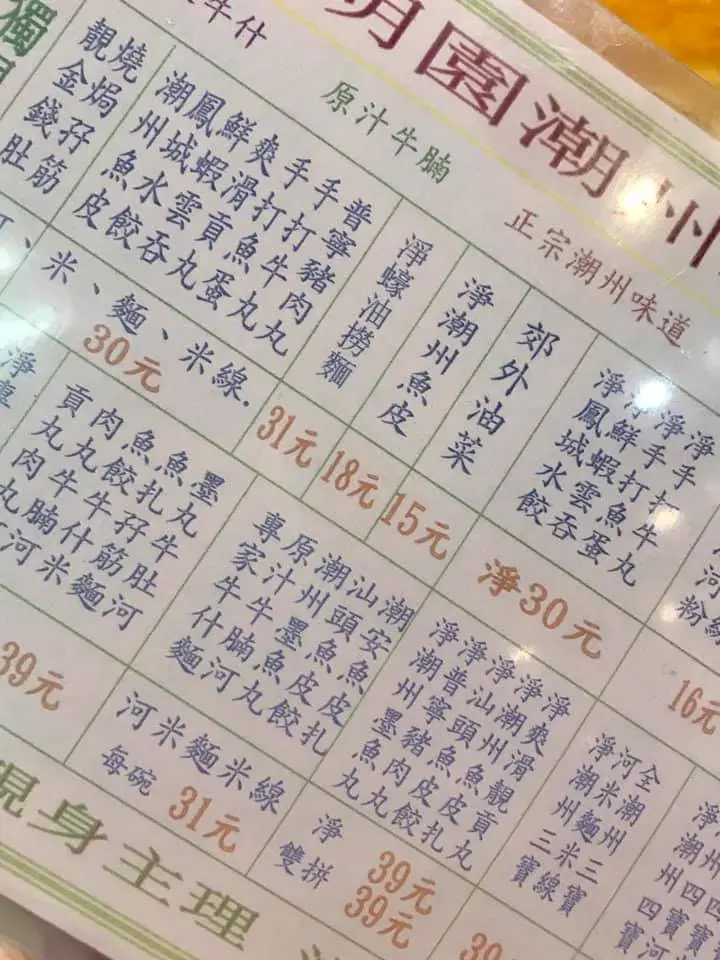 園潮州
牛什
原汁牛腩
正宗潮州味道
獨
燒焗孖筋
靚金錢肚
普寧豬肉丸
手打牛丸
手打魚蛋
爽滑貢丸
鮮蝦雲吞
鳳城水餃
潮州魚皮
、米、麵、米線.
30元
淨蠔油撈麵
31元
淨潮州魚皮
18元
郊外油菜
15元
淨手打牛丸
淨手打魚蛋
淨鮮蝦雲吞
淨鳳城水餃
淨30元
16元
墨丸牛肚河
魚扎孖筋麵
魚餃牛什米
肉丸牛腩河
貢丸肉丸
39元
潮安魚皮扎
汕頭魚皮餃
潮州墨魚丸
原汁牛腩河
專家牛什麵
河米麵米線
每碗 31元
淨爽滑靚貢丸
淨潮州魚皮扎
淨汕頭魚皮餃
淨普寧豬肉丸
淨潮州墨魚丸
淨 39元
雙拼 39元
全潮州三寶
河米麵米線
淨潮州三寶
淨潮州四寶
現身主理